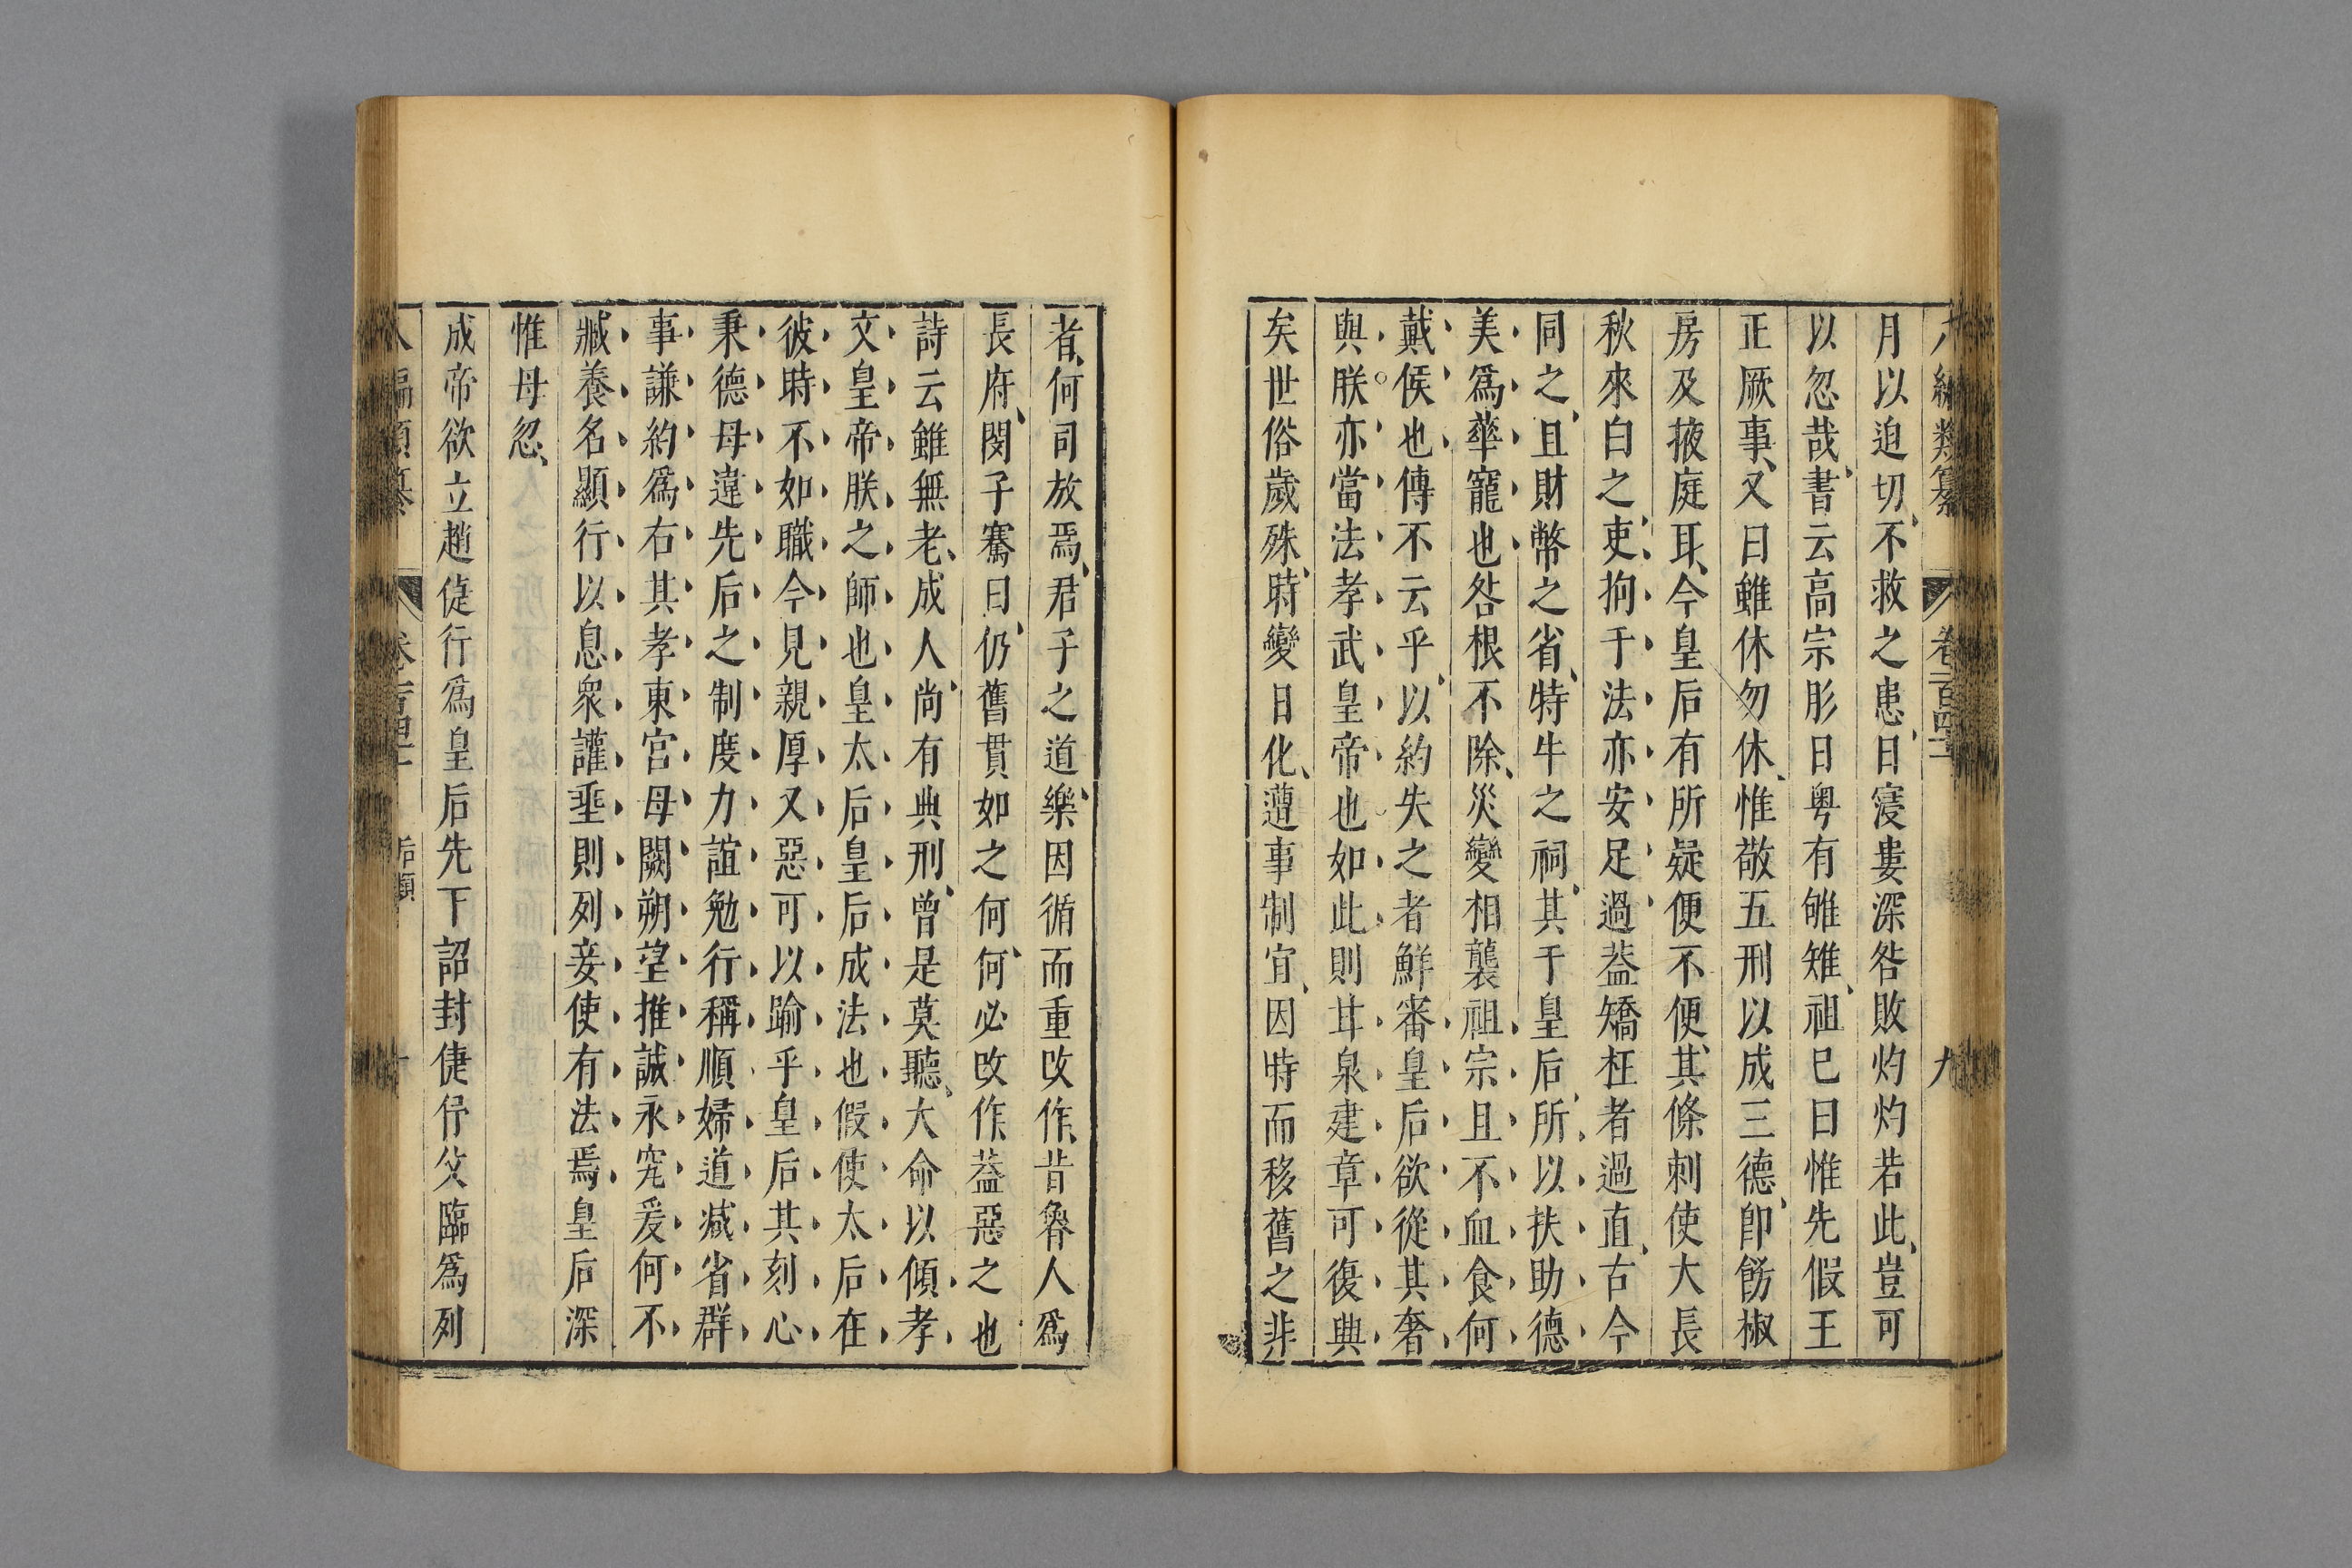 八編類纂 卷一百四十一 九
月以迫切不救之患日寖婁深咎敗灼灼若此豈可
以忽哉書云高宗肜日粤有雊雉祖巳曰惟先假王
正厥事又曰雖休勿休惟敬五刑以成三德卽飭椒
房及掖庭耳今皇后有所疑便不便其條刺使大長
秋來白之吏拘于法亦安足過葢矯枉者過直古今
同之且財幣之省特牛之祠其于皇后所以扶助德
美爲華寵也咎根不除災變相襲祖宗且不血食何
戴侯也傳不云乎以約失之者鮮審皇后欲從其奢
與朕亦當法孝武皇帝也如此則甘泉建章可復興
矣世俗歲殊時變日化遭事制宜因時而移舊之非
者何司放焉君子之道樂因循而重改作昔魯人爲
長府閔子騫曰仍舊貫如之何何必改作葢惡之也
詩云雖無老成人尚有典刑曾是莫聽大命以傾孝
文皇帝朕之師也皇太后皇后成法也假使太后在
彼時不如職今見親厚又惡可以踰乎皇后其刻心
秉德毋違先后之制度力誼勉行稱順婦道减省群
事謙約爲右其孝東宮毋闕朔望推誠永究爰何不
臧養名顯行以息衆讙垂則列妾使有法焉皇后深
惟毋忽
成帝欲立趙倢伃爲皇后先下詔封倢伃父臨爲列
八編類纂 卷一百四十一 后類 十